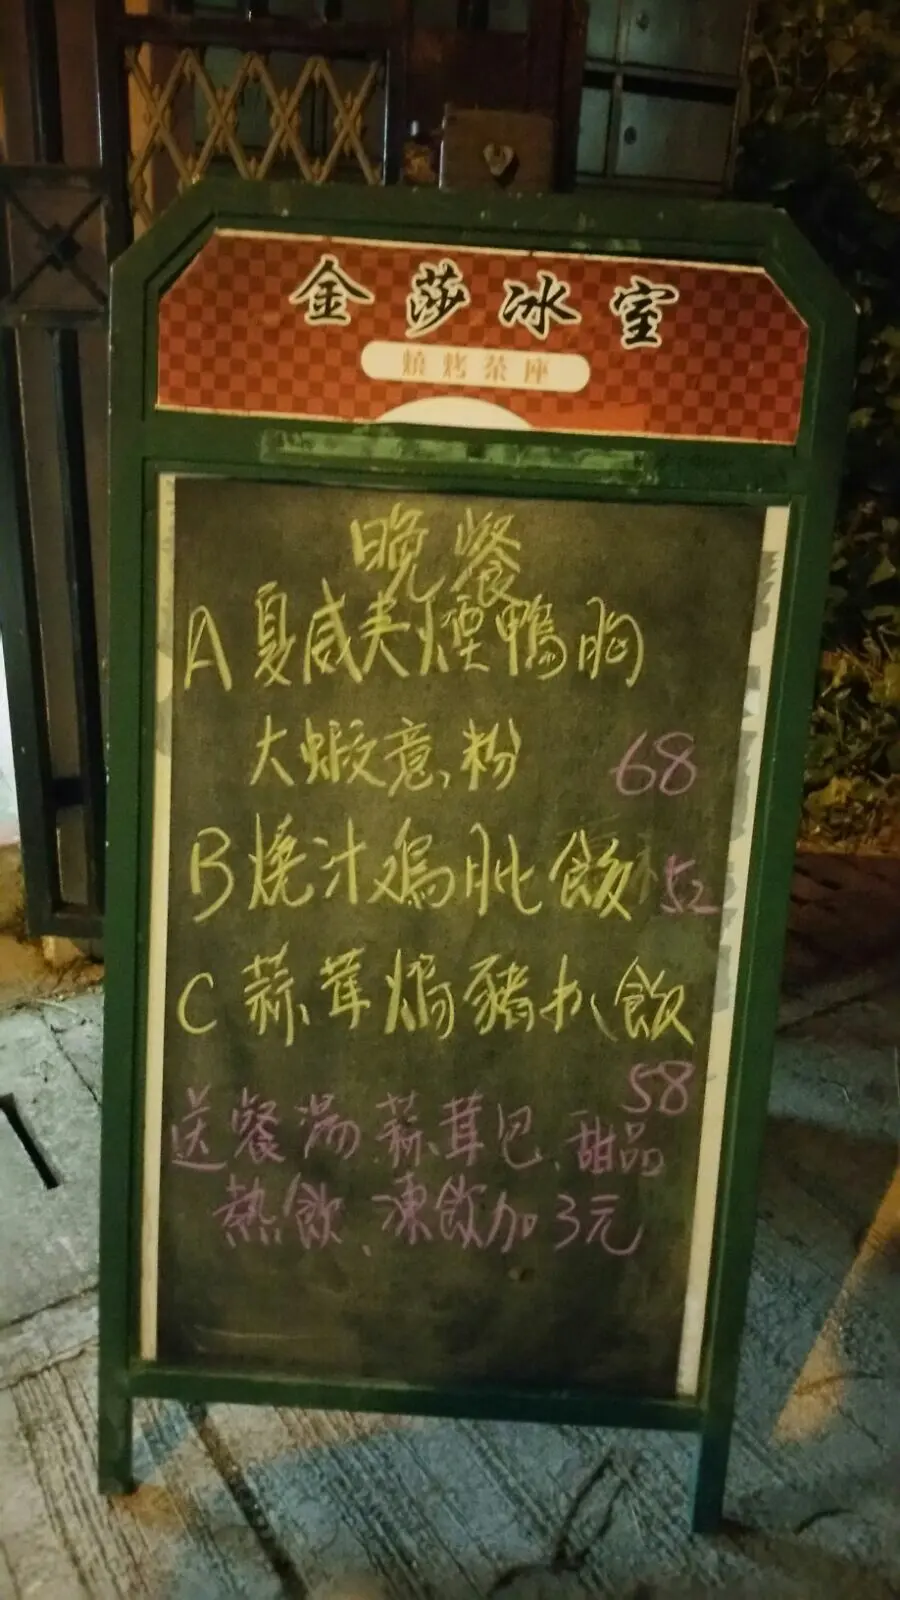 金莎冰室
燒烤茶座
晚餐
A 夏威夷煙鴨胸
大蝦意粉 68
B 燒汁鷄扒飯 52
C 蒜茸焗豬扒飯
58
送餐湯 蒜茸包、甜品
熱飲、凍飲加3元